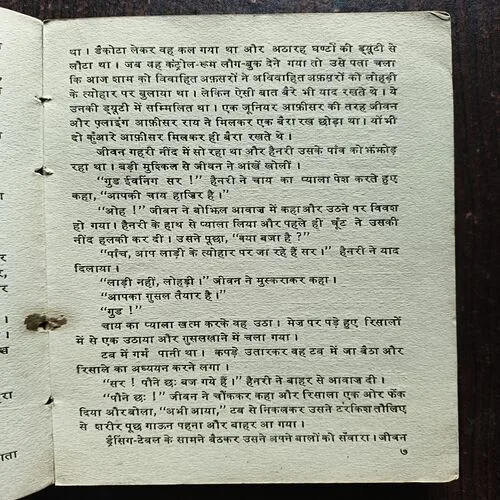 था । डैकोटा लेकर वह कल गया था और अठारह घण्टों की ड्यूटी से
लौटा था । जब वह कंट्रोल-रूम लौग-बुक देने गया तो उसे पता चला
कि आज शाम को विवाहित अफ़सरों ने अविवाहित अफ़सरों को लोहड़ी
के त्योहार पर बुलाया था । लेकिन ऐसी बात बैरे भी याद रखते थे । ये
उनकी ड्यूटी में सम्मिलित था । एक जूनियर आफ़ीसर की तरह जीवन
और फ़्लाइंग आफ़ीसर राय ने मिलकर एक बैरा रख छोड़ा था । यों भी
दो कुँआरे आफ़ीसर मिलकर ही बैरा रखते थे ।
जीवन गहरी नींद में सो रहा था और हैनरी उसके पांव को झंझोड़
रहा था । बड़ी मुश्किल से जीवन ने आंखें खोलीं ।
“गुड ईवनिंग सर !” हैनरी ने चाय का प्याला पेश करते हुए
कहा, “आपकी चाय हाज़िर है ।”
“ओह !” जीवन ने बोझिल आवाज़ में कहा और उठने पर विवश
हो गया । हैनरी के हाथ से प्याला लिया और पहले ही घूंट ने उसकी
नींद हलकी कर दी । उसने पूछा, “क्या बजा है ?”
“पाँच, आप लाड़ी के त्योहार पर जा रहे हैं सर ।” हैनरी ने याद
दिलाया ।
“लाड़ी नहीं, लोहड़ी ।” जीवन ने मुस्कराकर कहा ।
“आपका गुसल तैयार है ।”
“गुड !”
चाय का प्याला खत्म करके वह उठा । मेज पर पड़े हुए रिसालों
में से एक उठाया और गुसलखाने में चला गया ।
टब में गर्म पानी था । कपड़े उतारकर वह टब में जा बैठा और
रिसाले का अध्ययन करने लगा ।
“सर ! पौने छः बज गये हैं ।” हैनरी ने बाहर से आवाज़ दी ।
“पौने छः !” जीवन ने चौंककर कहा और रिसाला एक ओर फेंक
दिया और बोला, “अभी आया,” टब से निकलकर उसने टरकिश तौलिए
से शरीर पूछ गाऊन पहना और बाहर आ गया ।
ड्रैसिंग-टेबल के सामने बैठकर उसने अपने बालों को संवारा । जीवन
७